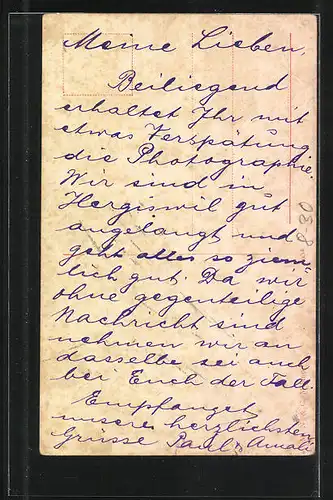 Meine Lieben,
Beiliegend
erhaltet Ihr mit
etwas Verspätung
die Photographie.
Wir sind in
Hergiswil gut
angelangt und
geht alles so ziem-
lich gut. Da wir
ohne gegenteilige
Nachricht sind
nehmen wir an
dasselbe sei auch
bei Euch der Fall.
Empfanget
unsere herzlichsten
Grüsse Paul & Amali
8-30